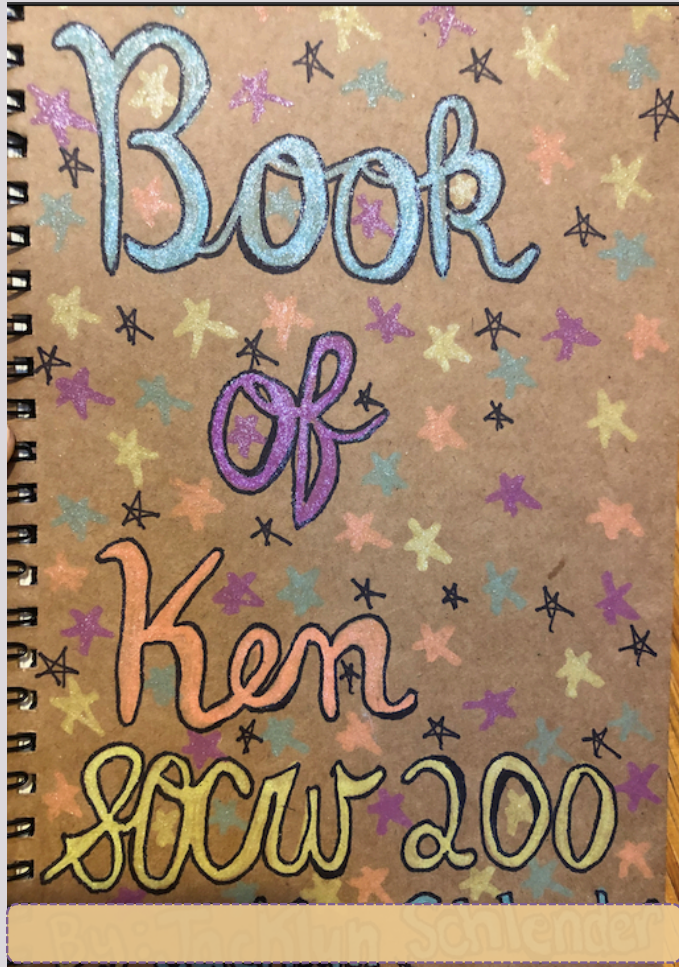 Book
of
Ken
SOCW 200